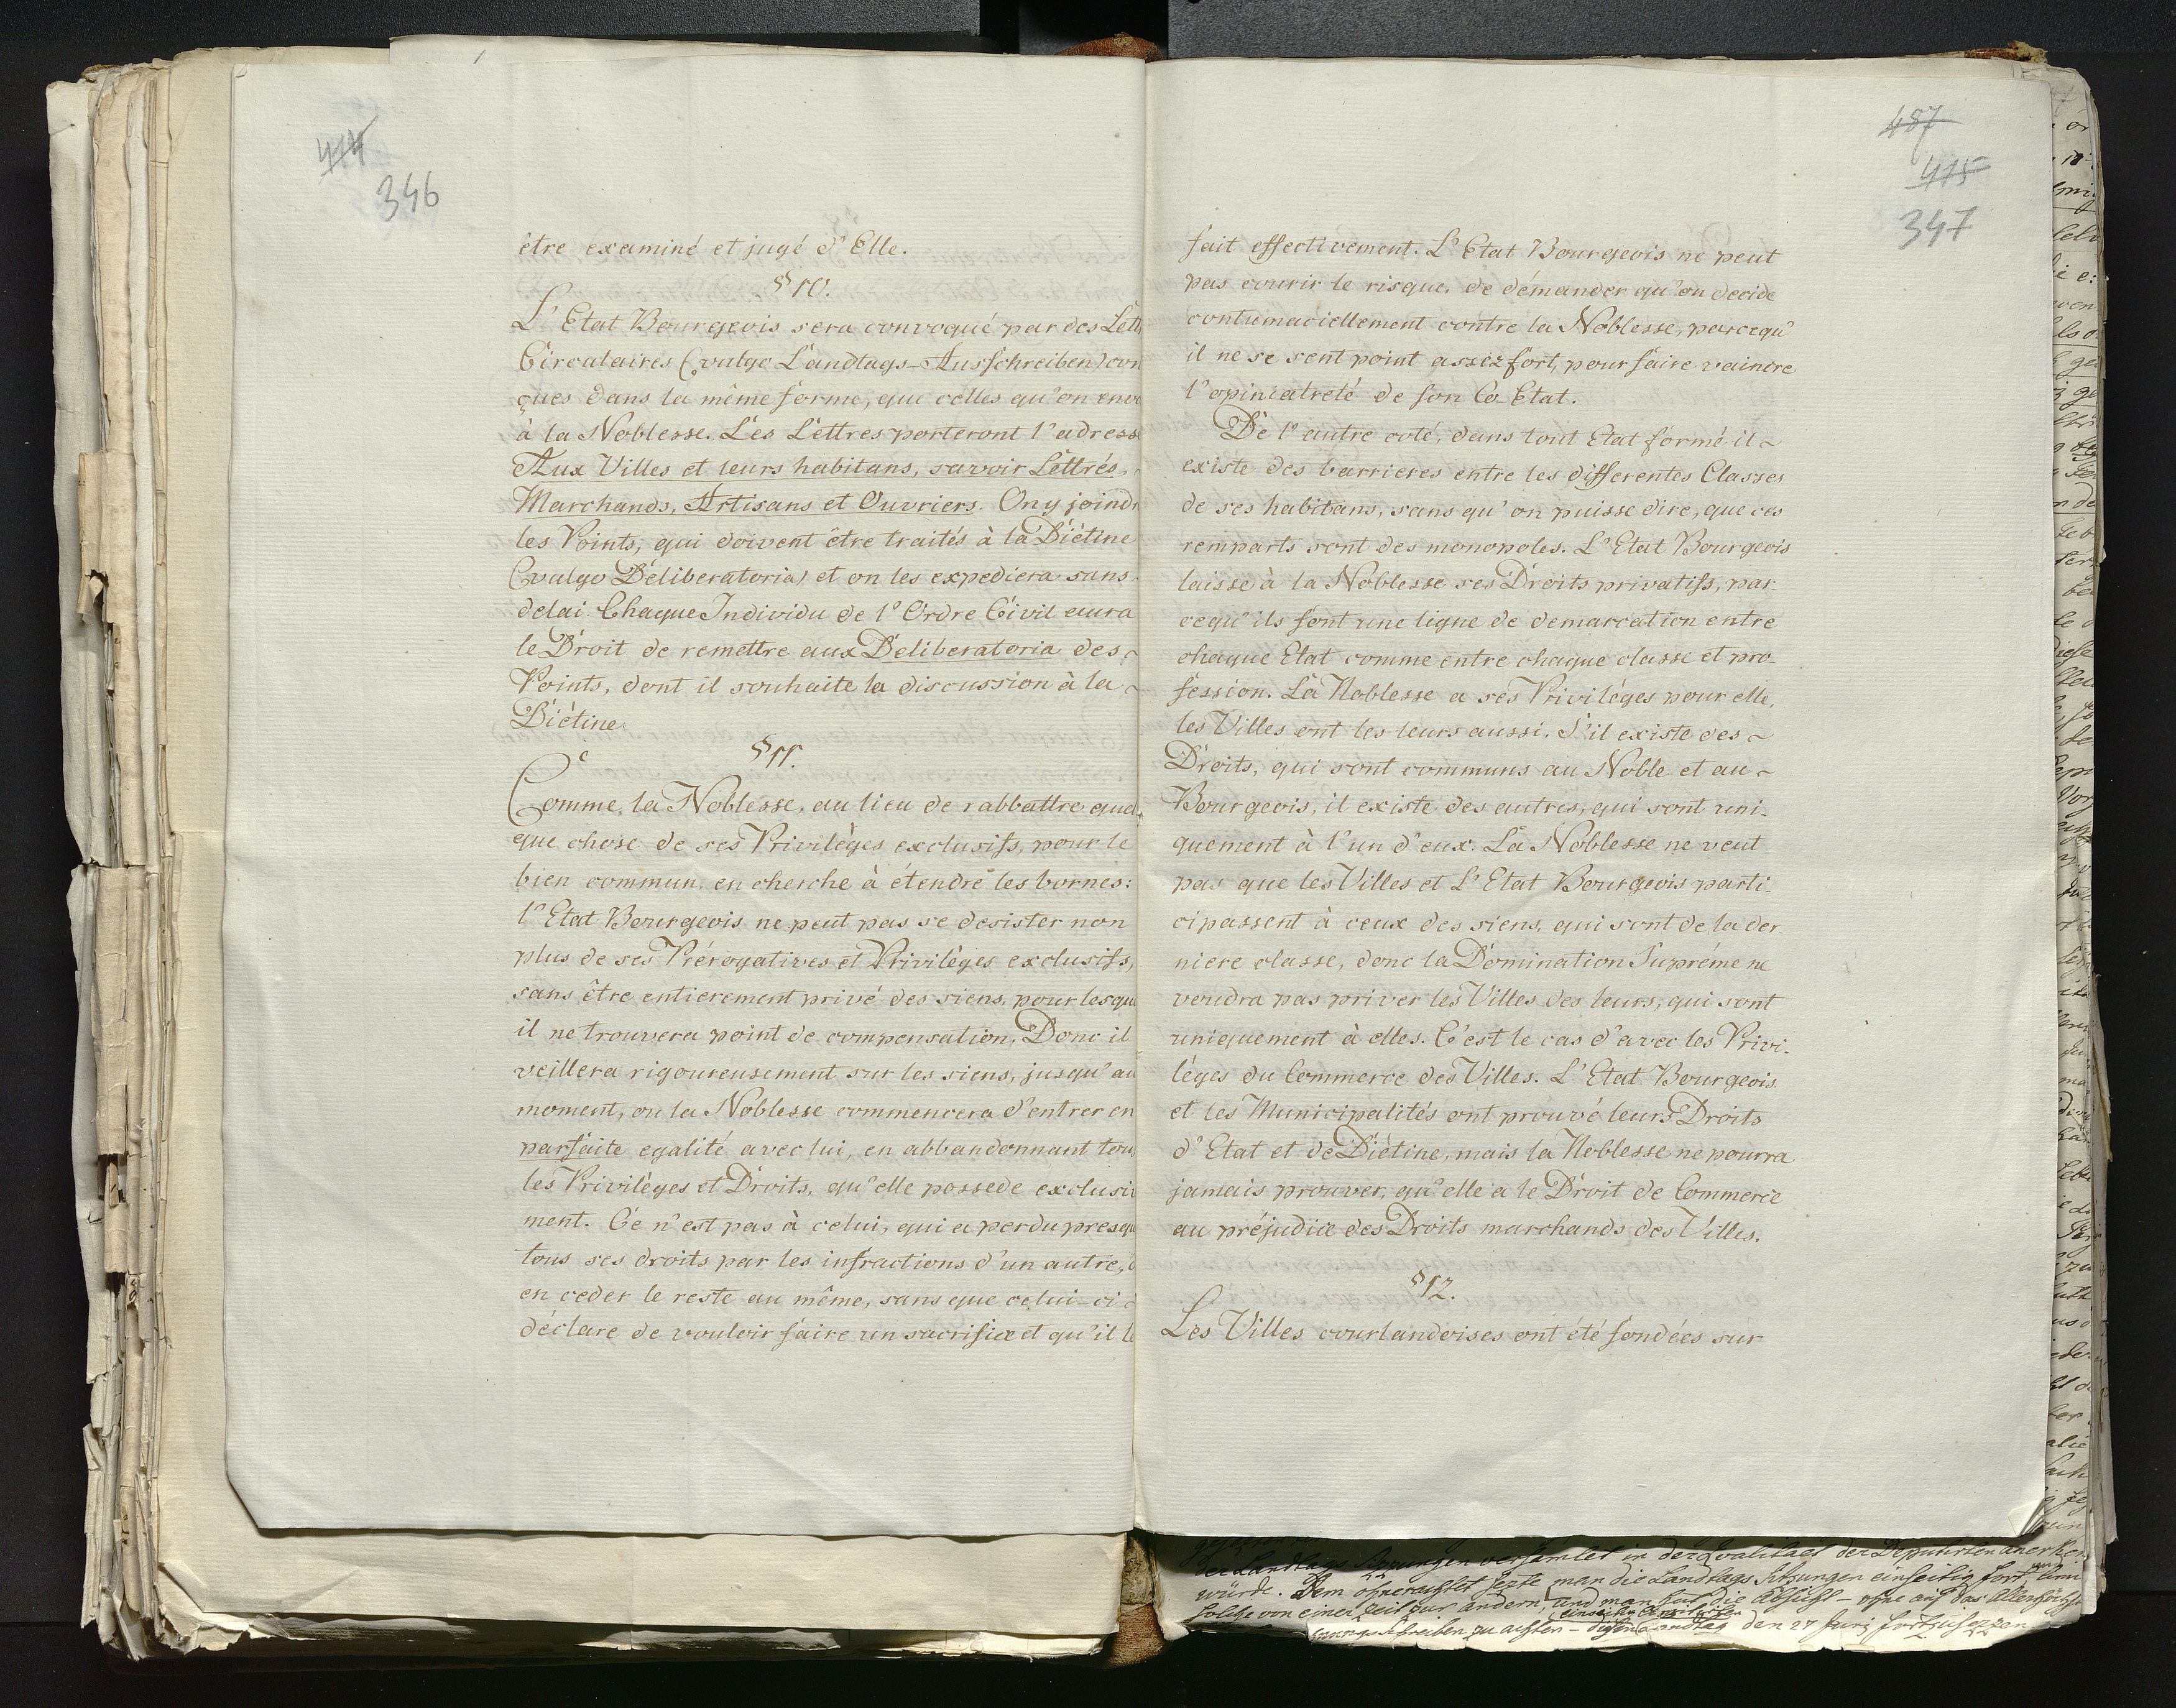 414
346
être examiné et jugé d'Elle.
§ 10.
L'Etat Bourgeois sera convoqué par des Lett
Circulaires (vulgo Landtags-Ausschreiben) con
çues dans la même forme, que celles qu'on env
à la Noblesse. Les Lettres porteront l'adresse
Aux Villes et leurs habitans, savoir Lettrés,
Marchands, Artisans et Ouvriers. On y joindr
les Points, qui doivent être traités à la Diétine
(vulgo Deliberatoria) et on les expediera sans
delai. Chaque Individu de l'Ordre Civil aura
le Droit de remettre aux Deliberatoria des
Points, dont il souhaite la discussion à la
Diétine.
§ 11.
Comme la Noblesse, au lieu de rabbattre quel
que chose de ses Privilèges exclusifs, pour le
bien commun, en cherche à étendre les bornes:
l'Etat Bourgeois ne peut pas se desister non
plus de ses Prérogatives et Privilèges exclusifs,
sans être entierement privé des siens, pour lesqu
il ne trouvera point de compensation. Donc il
veillera rigoureusement sur les siens, jusqu'au
moment, ou la Noblesse commencera d'entrer en
parfaite egalité avec lui, en abbandonnant tou
les Privilèges et Droits, qu'elle possede exclusi
ment. Ce n'est pas à celui, qui a perdu presqu
tous ses droits par les infractions d'un autre,
en ceder le reste au même, sans que celui-ci
déclare de vouloir faire un sacrifice et qu'il le
487
415
347
fait effectivement. L'Etat Bourgeois ne peut
pas courir le risque, de démander qu'on decide
contumaciellement contre la Noblesse, parcequ'
il ne se sent point assez fort, pour faire vaincre
l'opiniatreté de son Co-Etat.
De l'autre coté, dans tout Etat formé il
existe des barrieres entre les differentes Classes
de ses habitans, sans qu'on puisse dire, que ces
remparts sont des monopoles. L'Etat Bourgeois
laisse à la Noblesse ses Droits privatifs, par-
cequ'ils font une ligne de demarcation entre
chaque Etat comme entre chaque classe et pro-
fession. La Noblesse a ses Privilèges pour elle,
les Villes ont les leurs aussi. S'il existe des
Droits, qui sont communs au Noble et au
Bourgeois, il existe des autres, qui sont uni-
quement à l'un d'eux. La Noblesse ne veut
pas que les Villes et L'Etat Bourgeois parti-
cipassent à ceux des siens, qui sont de la der-
niere classe, donc la Domination Supréme ne
voudra pas priver les Villes des leurs, qui sont
uniquement à elles. C'est le cas d'avec les Privi-
léges du Commerce des Villes. L'Etat Bourgeois
et les Municipalités ont prouvé leurs Droits
d'Etat et de Diétine, mais la Noblesse ne pourra
jamais prouver, qu'elle a le Droit de Commerce
au préjudice des Droits marchands des Villes.
§ 12.
Les Villes courlandoises ont été fondées sur
der Landtags Sitzungen versamlet in der Qvalitaet der Deputirten anerken
würde. Dem ohnerachtet sezte man die Landtags Sitzungen einseitig fort
solche von einer Zeit zur andern, und man hat die Absicht - ohne auf das Allerhöchste
schreiben zu achten - diesen Landtag den 27 Junij fortzusezzen